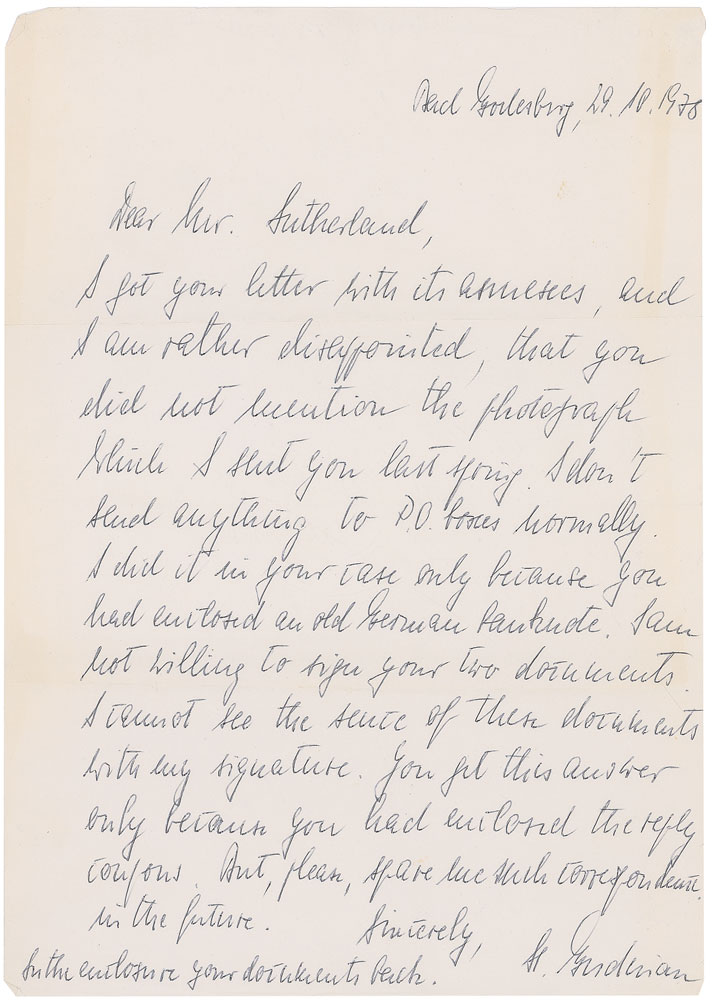 Bad Godesberg, 29.10.1978
Dear Mr. Sutherland,
I got your letter with its annexes, and
I am rather disappointed, that you
did not mention the photograph
which I sent you last spring. I don't
send anything to P.O. boxes normally.
I did it in your case only because you
had enclosed an old German banknote. I am
not willing to sign your two documents.
I cannot see the sence of these documents
with my signature. You get this answer
only because you had enclosed the reply
coupons. But, please, spare me such correspondence
in the future.
Sincerely,
H. Guderian
In the enclosure your documents back.